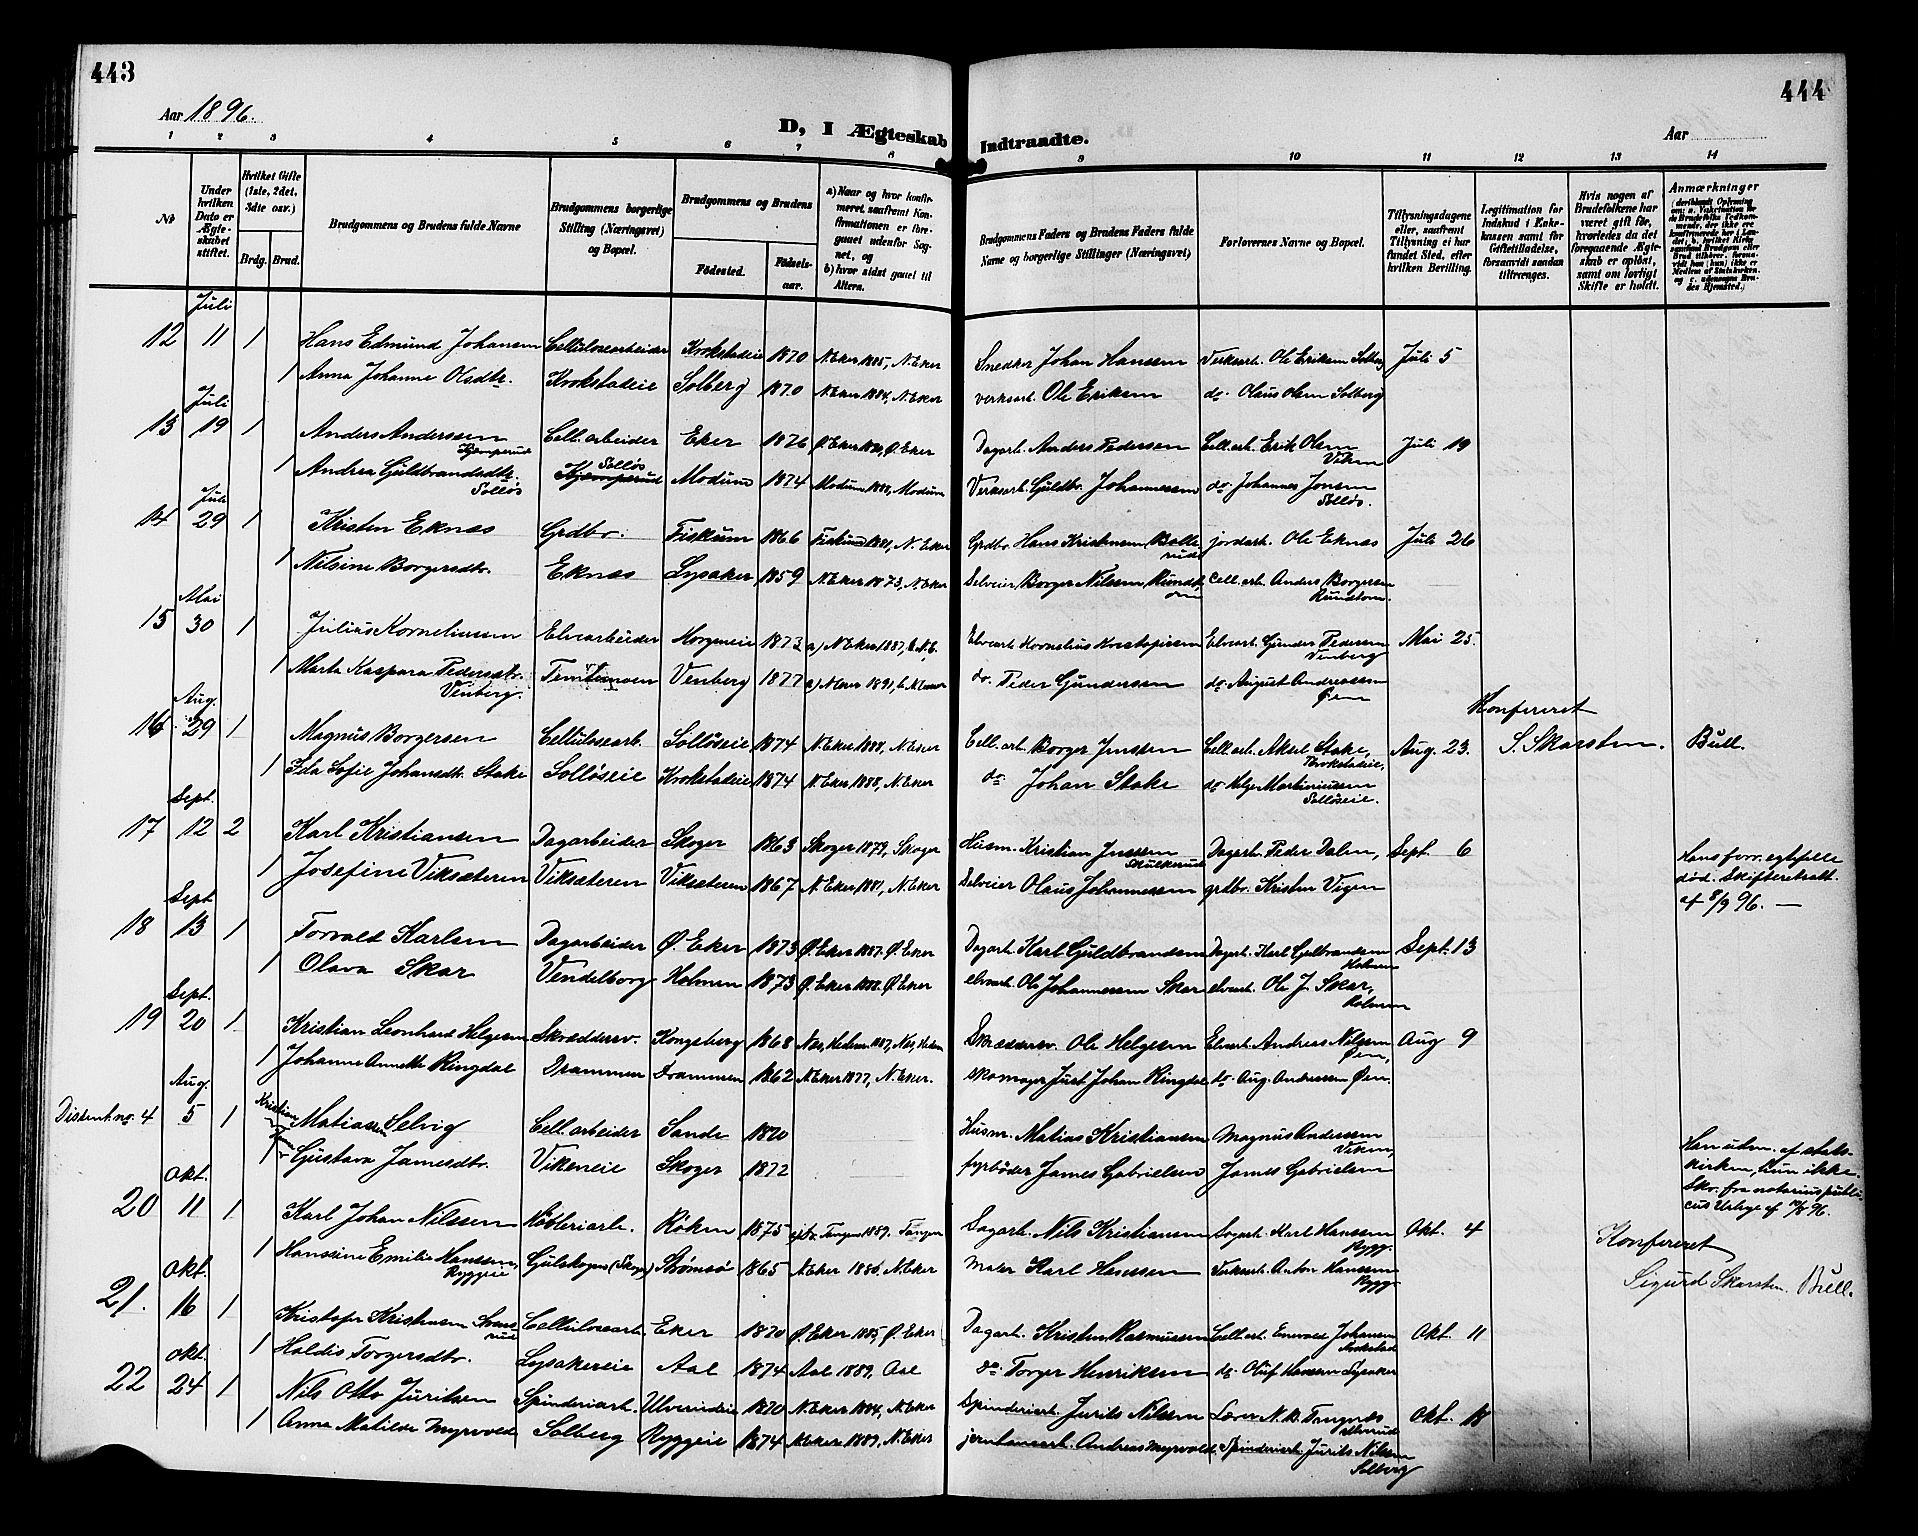 443
Aar 1896.
D, I Ægteskab
1 2 3 4 5 6 7 8
No
Under hvilken Dato er Ægteskabet stiftet.
Hvilket Gifte (1ste, 2det, 3die osv.)
Brdg. Brud.
Brudgommens og Brudens fulde Navne
Brudgommens borgerlige Stilling (Næringsvei) og Bopæl.
Brudgommens og Brudens
Fødested.
Fødselsaar.
a) Naar og hvor konfirmeret, saafremt Konfirmationen er foregaaet udenfor Sognet, og
b) hvor sidst gaaet til Alters.
Juli
12 11 1 Hans Edmund Johansen Cellulosearbeider Krokstadeie 1870 N. Eker 1885, N. Eker
1 Anna Johanne Olsdtr. Krokstadeie Solberg 1870 N. Eker 1884, N. Eker
Juli
13 19 1 Anders Anderssen Cell. arbeider Eker 1876 Ø. Eker
Kjemperud
1 Andrea Guldbrandsdtr. Solløs Modum 1874 Modum
Solløs
Juli
14 29 1 Kristen Eknæs Grdbr. Fiskum 1866 Fiskum 1881, N. Eker
1 Nilsine Borgersdtr. Eknæs Lysaker 1859 N. Eker 1873, N. Eker
Mai
15 30 1 Julius Korneliussen Elvearbeider Horgeneie 1873 a) N. Eker 1887, b. N. E.
1 Marte Kaspara Pedersdtr. Venberg 1877 a) N. Eker 1891, b. N. Eker
Venberg.
Aug.
16 29 1 Magnus Borgersen Cellulosearb. Solløseie 1874 N. Eker 1888, N. Eker
1 Ida Sofie Johansdtr. Stake Solløseie Krokstadeie 1874 N. Eker 1888, N. Eker
Sept.
17 12 2 Karl Kristiansen Dagarbeider Skoger 1863 Skoger 1879, Skoger
1 Josefine Viksæteren Viksæteren Viksæteren 1867 N. Eker 1881, N. Eker
Sept
18 13 1 Torvald Karlsen Dagarbeider Ø. Eker 1873 Ø. Eker 1887. Ø. Eker
1 Olava Skar Vendelborg Holmen 1873 Ø. Eker 1888. Ø. Eker
Sept.
19 20 1 Kristian Leonhard Helgesen Skræddersv. Kongsberg 1868 Nes, Hedem. 1887, Nes, Hedm
1 Johanne Annette Ringdal Drammen Drammen 1862 N. Eker 1877, N. Eker.
Aug.
Dissent. no. 4 5 1 Kristian Matiassen Selvig Cell. arbeider Sande 1870
1 Gustava Jamesdtr. Vikeneie Skoger 1872
Okt.
20 11 1 Karl Johan Nilssen Høvleriarb. Røken 1875 Tangen 1889. Tangen
1 Hanssine Emilie Hanssen, Gulskogen (Skoger) Strømsø 1865 N. Eker 1880. N. Eker
Ryggeie
Okt.
21. 16 1 Kristofer Kristensen Cellulosearb. Eker 1870 Ø. Eker 1885, Ø. Eker
1 Haldis Torgersdtr. Lysakereie Aal 1874 Aal 1889, Aal
Okt.
22 24 1 Nils Otto Juritsen Spinderiarb. Ulverudeie 1870 N. Eker 1884, N. Eker
1 Anna Matilde Myrvold Solberg Ryggeie 1874 N. Eker 1889, N. Eker
444
Indtraadte.
Aar
9 10 11 12 13 14
Brudgommens Faders og Brudens Faders fulde Navne og borgerlige Stillinger (Næringsvei)
Forlovernes Navne og Bopæl.
Tillysningsdagene eller, saafremt Tillysning ei har fundet Sted, efter hvilken Bevilling.
Legitimation for Indskud i Enkekassen samt for Giftetilladelse, forsaavidt saadan tiltrænges.
Hvis nogen af Brudefolkene har været gift før, hvorledes da det foregaaende Ægteskab er opløst, samt om lovligt Skifte er holdt.
Anmærkninger
Snedker Johan Hanssen Verksarb. Ole Eriksen Solberg Juli 5
verksarb. Ole Eriksen do. Olaus Olsen Solberg
Dagarb. Anders Pedersen Cell. arb. Erik Olsen Juli 19
Viken
Verksarb. Guldbr. Johannessen do. Johannes Jonsen
Solløs.
Grdbr. Hans Kristensen Bollerud jordarb. Ole Eknæs Juli 26
Selveier Borger Nilssen Rundtom Cell. arb. Anders Borgersen
Rundtom.
Elvearb. Kornelius Kristofersen Elvearb. Gunder Pedersen Mai 25.
Venberg
do. Peder Gundersen do. August Andreassen
Øen
Konfereret
Cell. arb. Borger Jenssen Cell. arb. Aksel Stake, Aug. 23. S. Skarsten. Bull.
Krokstadeie,
do Johan Stake do Helge Martiniussen
Solløseie.
Husm. Kristian Jenssen Dagarb. Peder Dalen, Sept. 6
Skulkerud
Selveier Olaus Johannessen grdbr. Kristen Vigen
Hans forr. egtefelle
død. Skifteretsatt.
af 8/9 96. —
Dagarb. Karl Guldbrandsen Dagarb. Karl Gulbrandsen Sept. 13
Holmen
elvearb. Ole Johannessen Skar elvearb. Ole J. Skar,
Holmen
Skræddersv. Ole Helgesen Elvearb. Andreas Nilssen Aug 9
Øen,
skomager Just Johan Ringdal do Aug. Andreassen Øen.
Husm. Matias Kristiansen Magnus Anderssen
Viken,
fyrbøder James Gabrielsen James Gabrielsen
Han udm. af stats-
kirken, hun ikke
Skr. fra notarius publi-
cus
Dagarb. Nils Kristiansen Dagarb. Karl Hanssen Okt. 4
Rygg.
Maler Karl Hanssen Verksarb. Anton Hanssen
Rygg
Konfereret
Sigurd Skarsten. Bull.
Dagarb. Kristen Rasmussen Cell. arb. Enevald Johansen Okt. 11
do. Torger Henriksen do. Oluf Hanssen Lysaker
Spinderiarb. Jurits Nilssen Lærer N. B. Tangnæs Okt. 18
Ulverud
jernbanearb. Andreas Myrvold. Spinderiarb. Jurits Nilssen
Solberg